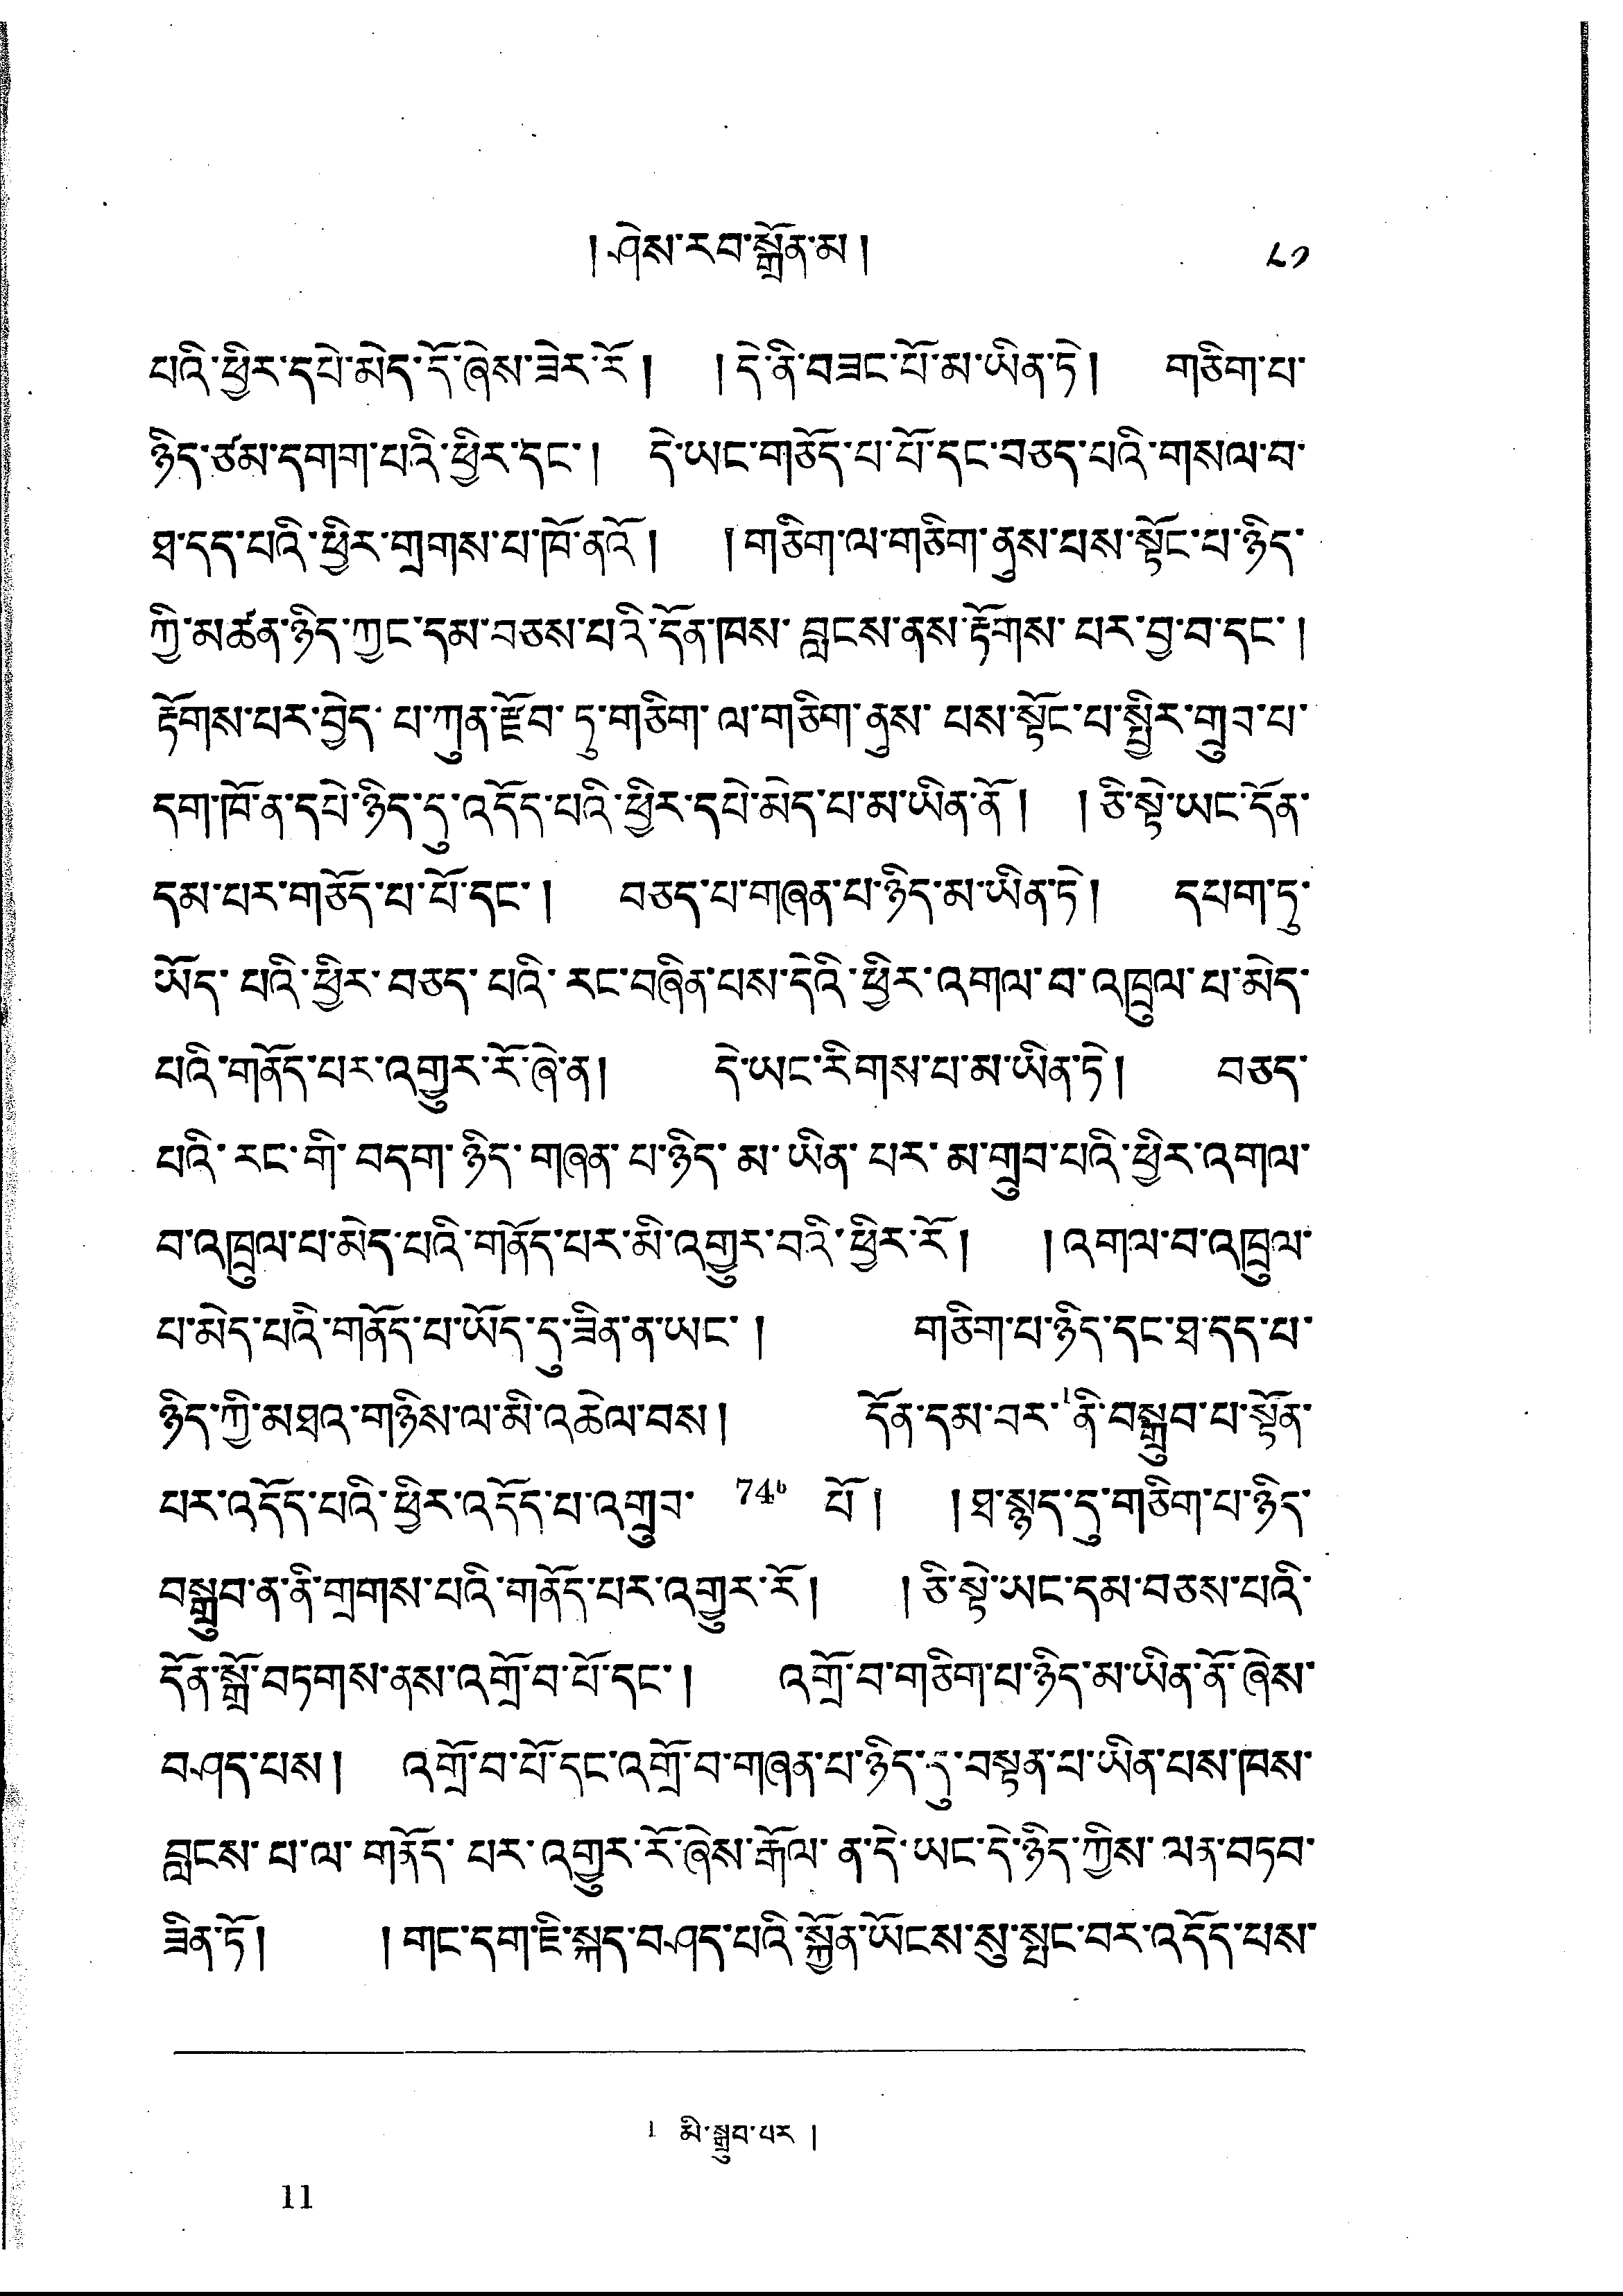 ། ཤེས་རབ་སྒྲོན་མ །
༨༡
པའི་ཕྱིར་དཔེ་མེད་དོ་ཞེས་ཟེར་རོ ། ། དེ་ནི་བཟང་པོ་མ་ཡིན་ཏེ ། གཅིག་པ་
ཉིད་ཙམ་དགག་པའི་ཕྱིར་དང་ ། དེ་ཡང་གཅོད་པ་པོ་དང་བཅད་པའི་གསལ་བ་
ཐ་དད་པའི་ཕྱིར་གྲགས་པ་ཁོ་ནའོ ། ། གཅིག་ལ་གཅིག་ནུས་པས་སྟོང་པ་ཉིད་
ཀྱི་མཚན་ཉིད་ཀྱང་དམ་བཅས་པའི་དོན་ཁས་བླངས་ནས་རྟོགས་པར་བྱ་བ་དང་ །
རྟོགས་པར་བྱེད་པ་ཀུན་རྫོབ་ཏུ་གཅིག་ལ་གཅིག་ནུས་པས་སྟོང་པ་སྤྱིར་གྲུབ་པ་
དག་ཁོ་ན་དཔེ་ཉིད་དུ་འདོད་པའི་ཕྱིར་དཔེ་མེད་པ་མ་ཡིན་ནོ ། ། ཅི་སྟེ་ཡང་དོན་
དམ་པར་གཅོད་པ་པོ་དང་ ། བཅད་པ་གཞན་པ་ཉིད་མ་ཡིན་ཏེ ། དཔག་ཏུ་
ཡོད་པའི་ཕྱིར་བཅད་པའི་རང་བཞིན་པས་དེའི་ཕྱིར་འགལ་བ་འཁྲུལ་པ་མེད་
པའི་གནོད་པར་འགྱུར་རོ་ཞེ་ན ། དེ་ཡང་རིགས་པ་མ་ཡིན་ཏེ ། བཅད་
པའི་རང་གི་བདག་ཉིད་གཞན་པ་ཉིད་མ་ཡིན་པར་མ་གྲུབ་པའི་ཕྱིར་འགལ་
བ་འཁྲུལ་པ་མེད་པའི་གནོད་པར་མི་འགྱུར་བའི་ཕྱིར་རོ ། ། འགལ་བ་འཁྲུལ་
པ་མེད་པའི་གནོད་པ་ཡོད་དུ་ཟིན་ན་ཡང་ ། གཅིག་པ་ཉིད་དང་ཐ་དད་པ་
ཉིད་ཀྱི་མཐའ་གཉིས་ལ་མི་འཆེལ་བས ། དོན་དམ་བར་¹ནི་བསྒྲུབ་པ་སྟོན་
པར་འདོད་པའི་ཕྱིར་འདོད་པ་འགྲུབ་ 74ᵇ པོ ། ། ཐ་སྙད་དུ་གཅིག་པ་ཉིད་
བསྒྲུབ་ན་ནི་གྲགས་པའི་གནོད་པར་འགྱུར་རོ ། ། ཅི་སྟེ་ཡང་དམ་བཅས་པའི་
དོན་སྒྲོ་བཏགས་ནས་འགྲོ་བ་པོ་དང་ ། འགྲོ་བ་གཅིག་པ་ཉིད་མ་ཡིན་ནོ་ཞེས་
བཤད་པས ། འགྲོ་བ་པོ་དང་འགྲོ་བ་གཞན་པ་ཉིད་དུ་བསྟན་པ་ཡིན་པས་ཁས་
བླངས་པ་ལ་གནོད་པར་འགྱུར་རོ་ཞེས་རྒོལ་ན་དེ་ཡང་དེ་ཉིད་ཀྱིས་ལན་བཏབ་
ཟིན་ཏོ ། ། གང་དག་ཇི་སྐད་བཤད་པའི་སྐྱོན་ཡོངས་སུ་སྤང་བར་འདོད་པས་
1 མི་སྒྲུབ་པར །
11